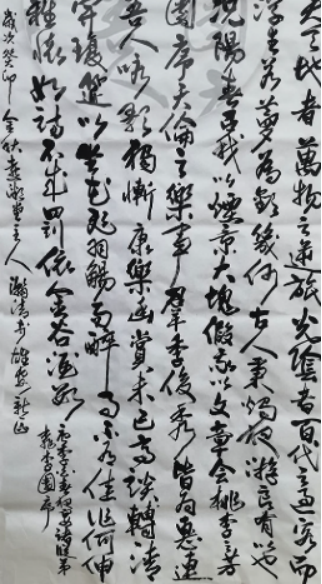 夫天地者萬物之逆旅光陰者百代之過客而
浮生若夢為歡幾何古人秉燭夜遊良有以也
況陽春召我以煙景大塊假我以文章會桃李芳
園序天倫之樂事羣季俊秀皆為惠連
吾人詠歌獨慚康樂幽賞未已高談轉清
開瓊筵以坐花飛羽觴而醉月不有佳作何伸
雅懷如詩不成罰依金谷酒數
唐李白春夜宴諸從弟
桃李園序
歲次癸卯金秋主人瀚清书